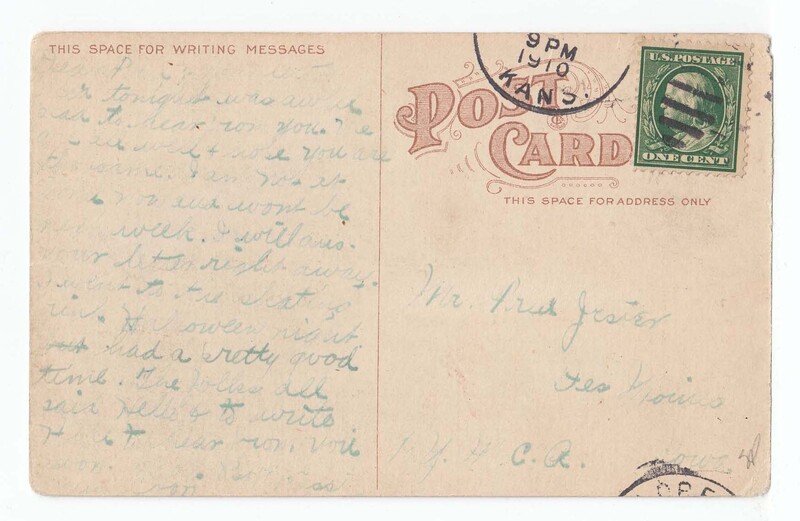 THIS SPACE FOR WRITING MESSAGES
tonight was awful
to hear from you. We
all well & hope you are
the same. I am not at
home now but wont be
week. I will ans.
your letter right away.
I went to the skating
rink Halloween night
had a pretty good
time. The folks all
said Hello & to write
to hear from you
soon.
9 PM
1910
KANS.
U.S. POSTAGE
ONE CENT
POST
CARD
THIS SPACE FOR ADDRESS ONLY
Mr. Fred Jester
Des Moines
Y. M. C. A. Iowa